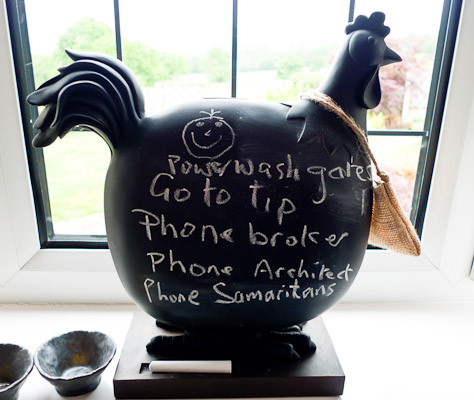 Powerwash gate
Go to tip
Phone broker
Phone Architect
Phone Samaritans